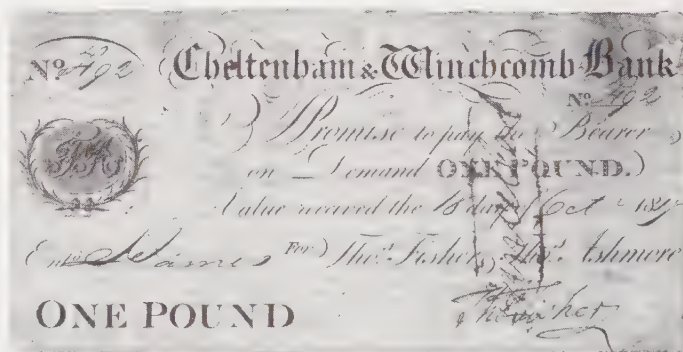 No 492 Cheltenham & Winchcomb Bank
No 492
I Promise to pay the Bearer
on Demand ONE POUND.
Value received the 18 day of Oct
Entd. For Thos. Fisher, Thos. Ashmore
ONE POUND Thos Fisher